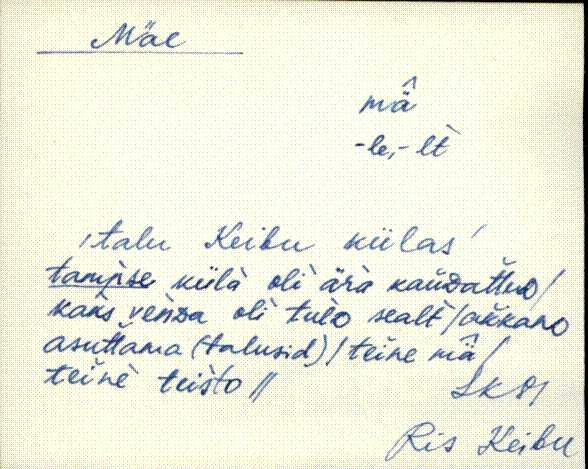 Mäe
mä̂
-le, -lt
'talu Keibu külas'
tampse külà oli ärà kaùdattuD/
kaks venDa oli tulD sealt/akkanD
asuttama (talusid)/teine mä̂/
teinè teisto //
LK81
Ris Keibu